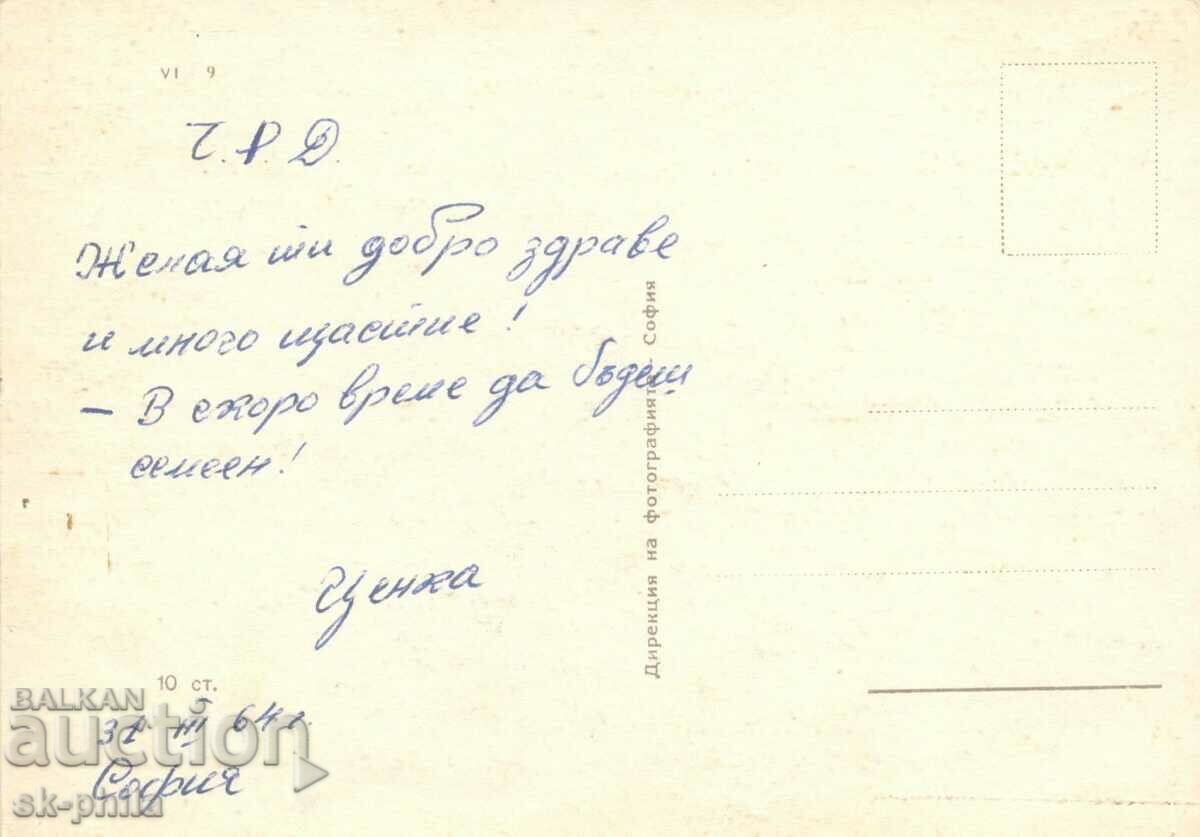 VI 9
Ч.Р.Д.
Желая ти добро здраве
и много щастие!
– В скоро време да бъдеш
семеен!
Ценка
10 ст.
31 III 64 г.
София
Дирекция на фотографията – София
BALKAN
auction
sk-phila